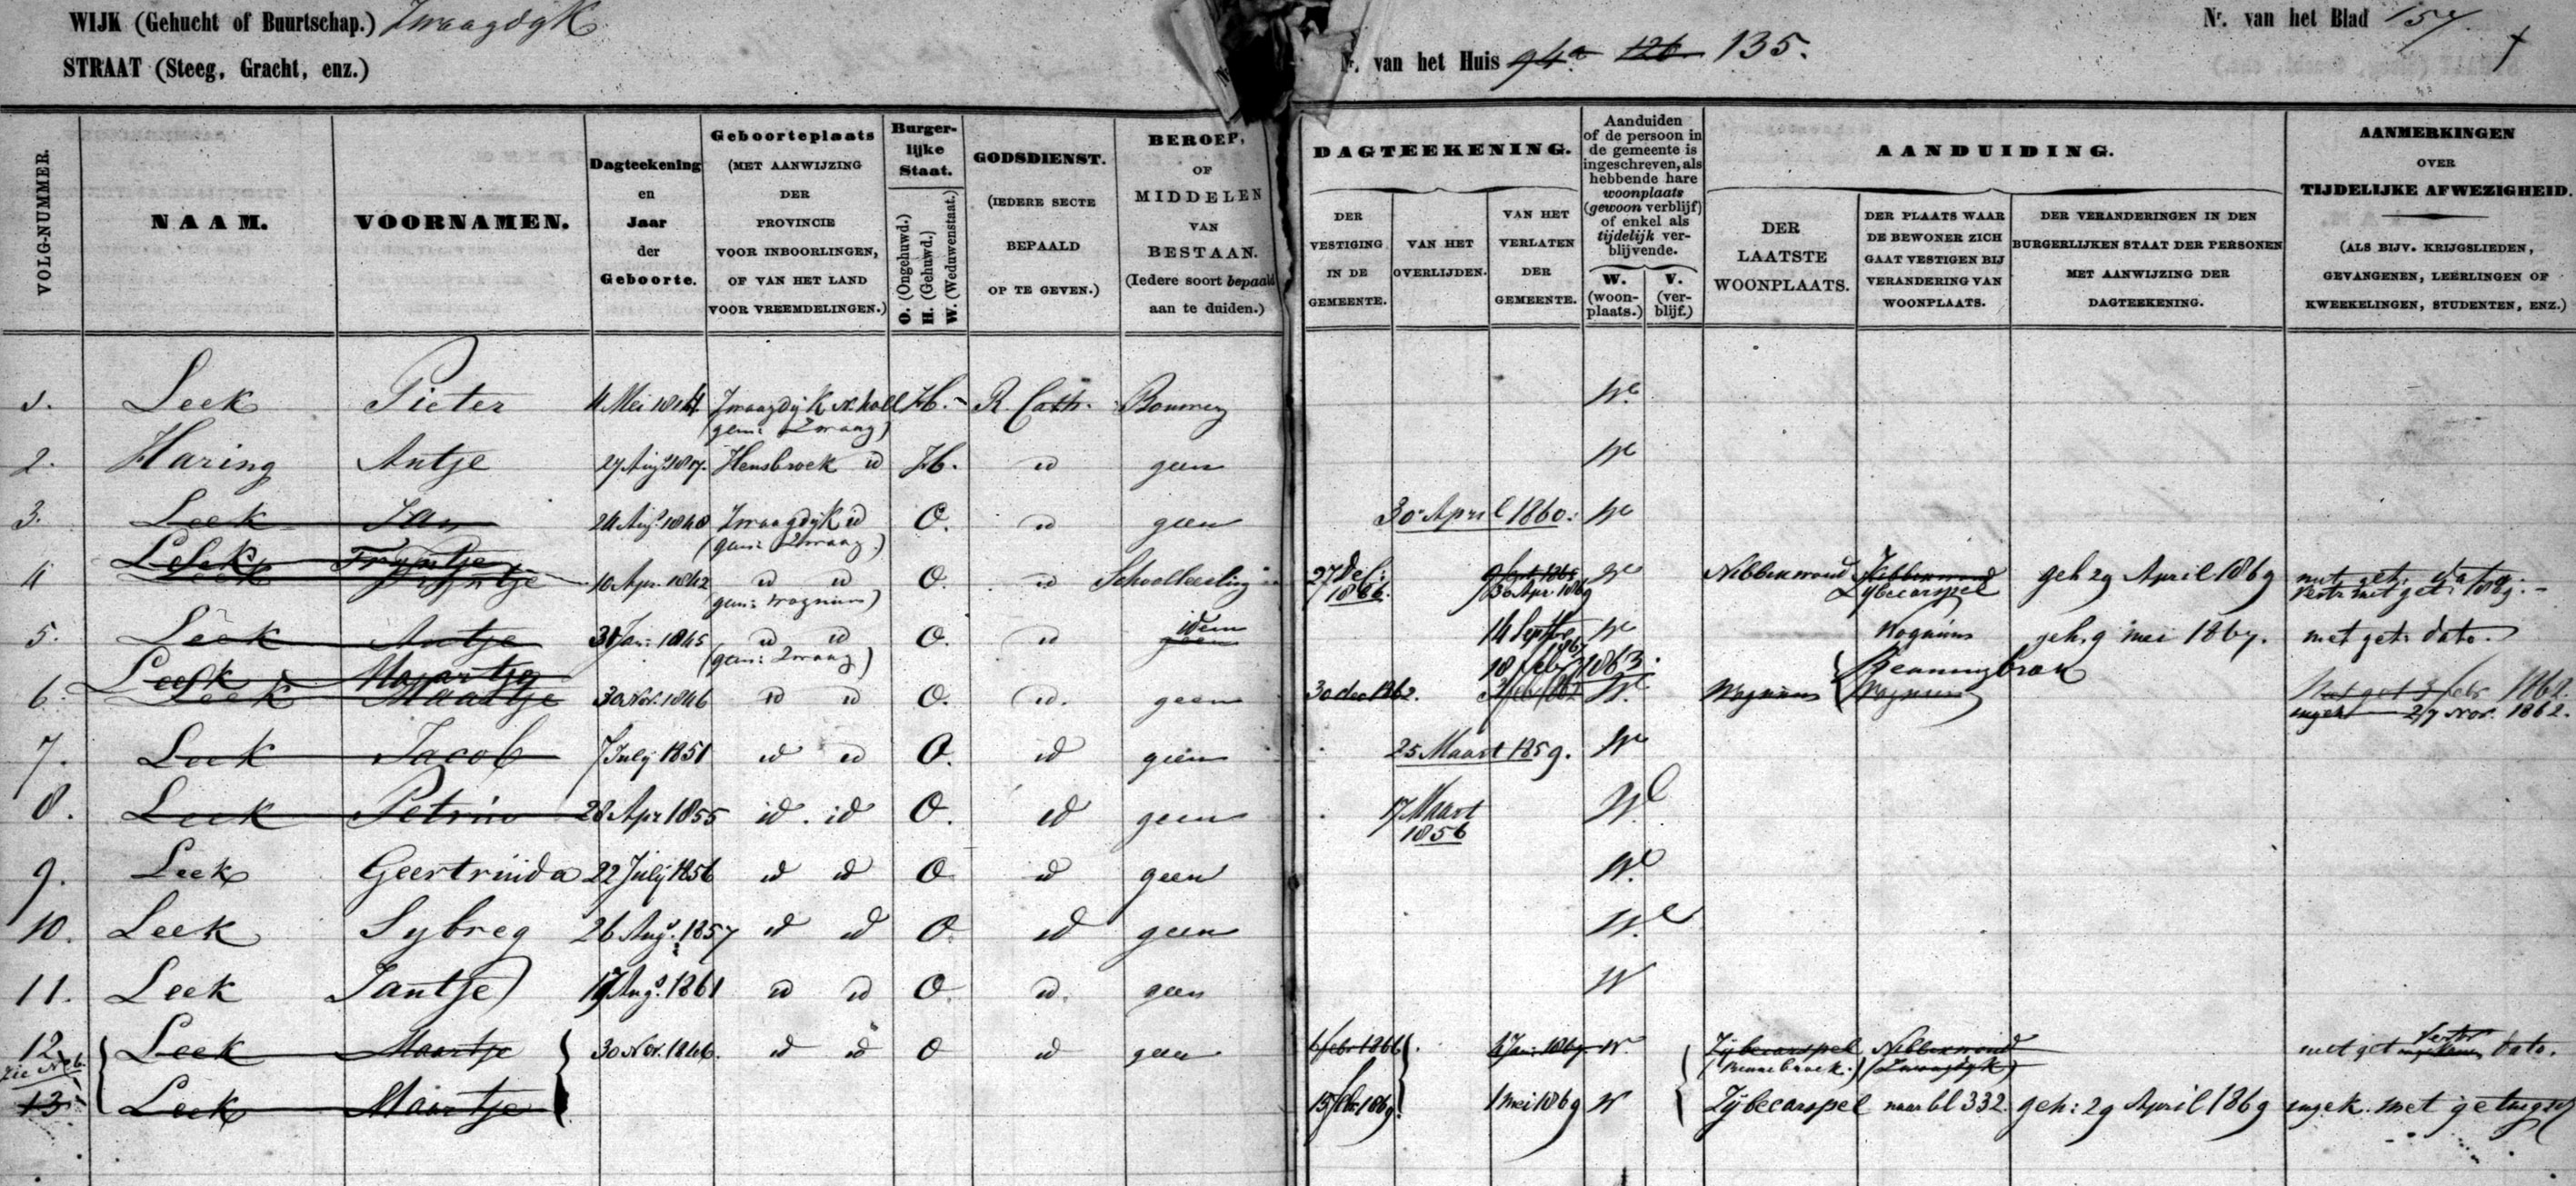 WIJK (Gehucht of Buurtschap.) Zwaagdyk
Nr. van het Blad 157.
STRAAT (Steeg, Gracht, enz.)
Nr. van het Huis 94a 126 135.
VOLG-NUMMER.
NAAM.
VOORNAMEN.
Dagteekening
en
Jaar
der
Geboorte.
Geboorteplaats
(MET AANWIJZING
DER
PROVINCIE
VOOR INBOORLINGEN,
OF VAN HET LAND
VOOR VREEMDELINGEN.)
Burger-
lijke
Staat.
O. (Ongehuwd.)
H. (Gehuwd.)
W. (Weduwenstaat.)
GODSDIENST.
(IEDERE SECTE
BEPAALD
OP TE GEVEN.)
BEROEP,
OF
MIDDELEN
VAN
BESTAAN.
(Iedere soort bepaald
aan te duiden.)
DAGTEEKENING.
DER
VESTIGING
IN DE
GEMEENTE.
VAN HET
OVERLIJDEN.
VAN HET
VERLATEN
DER
GEMEENTE.
Aanduiden
of de persoon in
de gemeente is
ingeschreven, als
hebbende hare
woonplaats
(gewoon verblijf)
of enkel als
tijdelijk ver-
blijvende.
W.
(woon-
plaats.)
V.
(ver-
blijf.)
AANDUIDING.
DER
LAATSTE
WOONPLAATS.
DER PLAATS WAAR
DE BEWONER ZICH
GAAT VESTIGEN BIJ
VERANDERING VAN
WOONPLAATS.
DER VERANDERINGEN IN DEN
BURGERLIJKEN STAAT DER PERSONEN
MET AANWIJZING DER
DAGTEEKENING.
AANMERKINGEN
OVER
TIJDELIJKE AFWEZIGHEID.
(ALS BIJV. KRIJGSLIEDEN,
GEVANGENEN, LEERLINGEN OF
KWEEKELINGEN, STUDENTEN, ENZ.)
1. Leek Pieter 4 Mei 1814 Zwaagdijk N. holl H. R. Cath. W
(gem: Zwaag)
2. Haring Antje 27 Aug 1817. Hensbroek id H. id geen W
3. Leek Jan 24 Aug 1840 Zwaagdyk id O. id geen 30 April 1860. W
(gem: Zwaag)
Leek Tryntje
4 Leek Tryntje 10 Apr. 1842 id id O. id Schoolleerling 27 Dec: 1866. 30 Apr. 1869 W Nibbixwoud Nibbixwoud Zybecarspel geh 29 April 1869 met get. dato
(gem: Wognum)
5. Leek Antje 31 Jan: 1845 id id O. id idem geen 14 Sept W Wognum geh. 9 mei 1867. met get: dato.
(gem: Zwaag)
Leek Maartje 18 feb 1863.
6. Leek Maartje 30 Nov. 1846 id id O. id. geen 30 dec 1862. W. Wognum Wognum Met get 3 febr 1862.
27 Nov. 1862.
7. Leek Jacob 7 July 1851 id id O. id geen 25 Maart 1859. W
8. Leek 28 Apr 1855 id. id O. id geen 17 Maart 1856 W
9. Leek Geertruida 22 July 1856 id id O id geen W.
10. Leek Sybreg 26 Aug. 1857 id id O id geen W.
11. Leek Jantje 19 Aug. 1861 id id O id. geen W
12 Leek Maartje 30 Nov. 1846. id id O id geen 6 febr 1866 Jan: 1867 W. Zybecarspel Nibbixwoud met get dato.
zie No 6. (Bennebroek.) (Zwaagdyk)
13 Leek Maartje 15 febr. 1869. 1 mei 1869 W Zybecarspel naar bl 332. geh: 29 April 1869 ingek. met getuigs